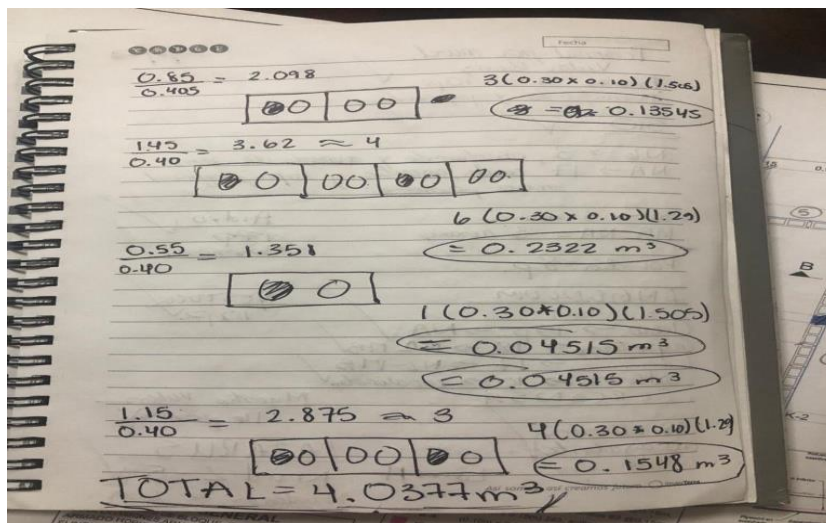 Fecha
0.85/0.405 = 2.098
3(0.30 x 0.10)(1.505)
= 0.13545
1.45/0.40 = 3.62 ≈ 4
6(0.30 x 0.10)(1.29)
= 0.2322 m³
0.55/0.40 = 1.351
1(0.30*0.10)(1.505)
= 0.04515 m³
= 0.04515 m³
1.15/0.40 = 2.875 ≈ 3
4(0.30 x 0.10)(1.29)
= 0.1548 m³
TOTAL = 4.0377m³
B
5
K-2
NERAL